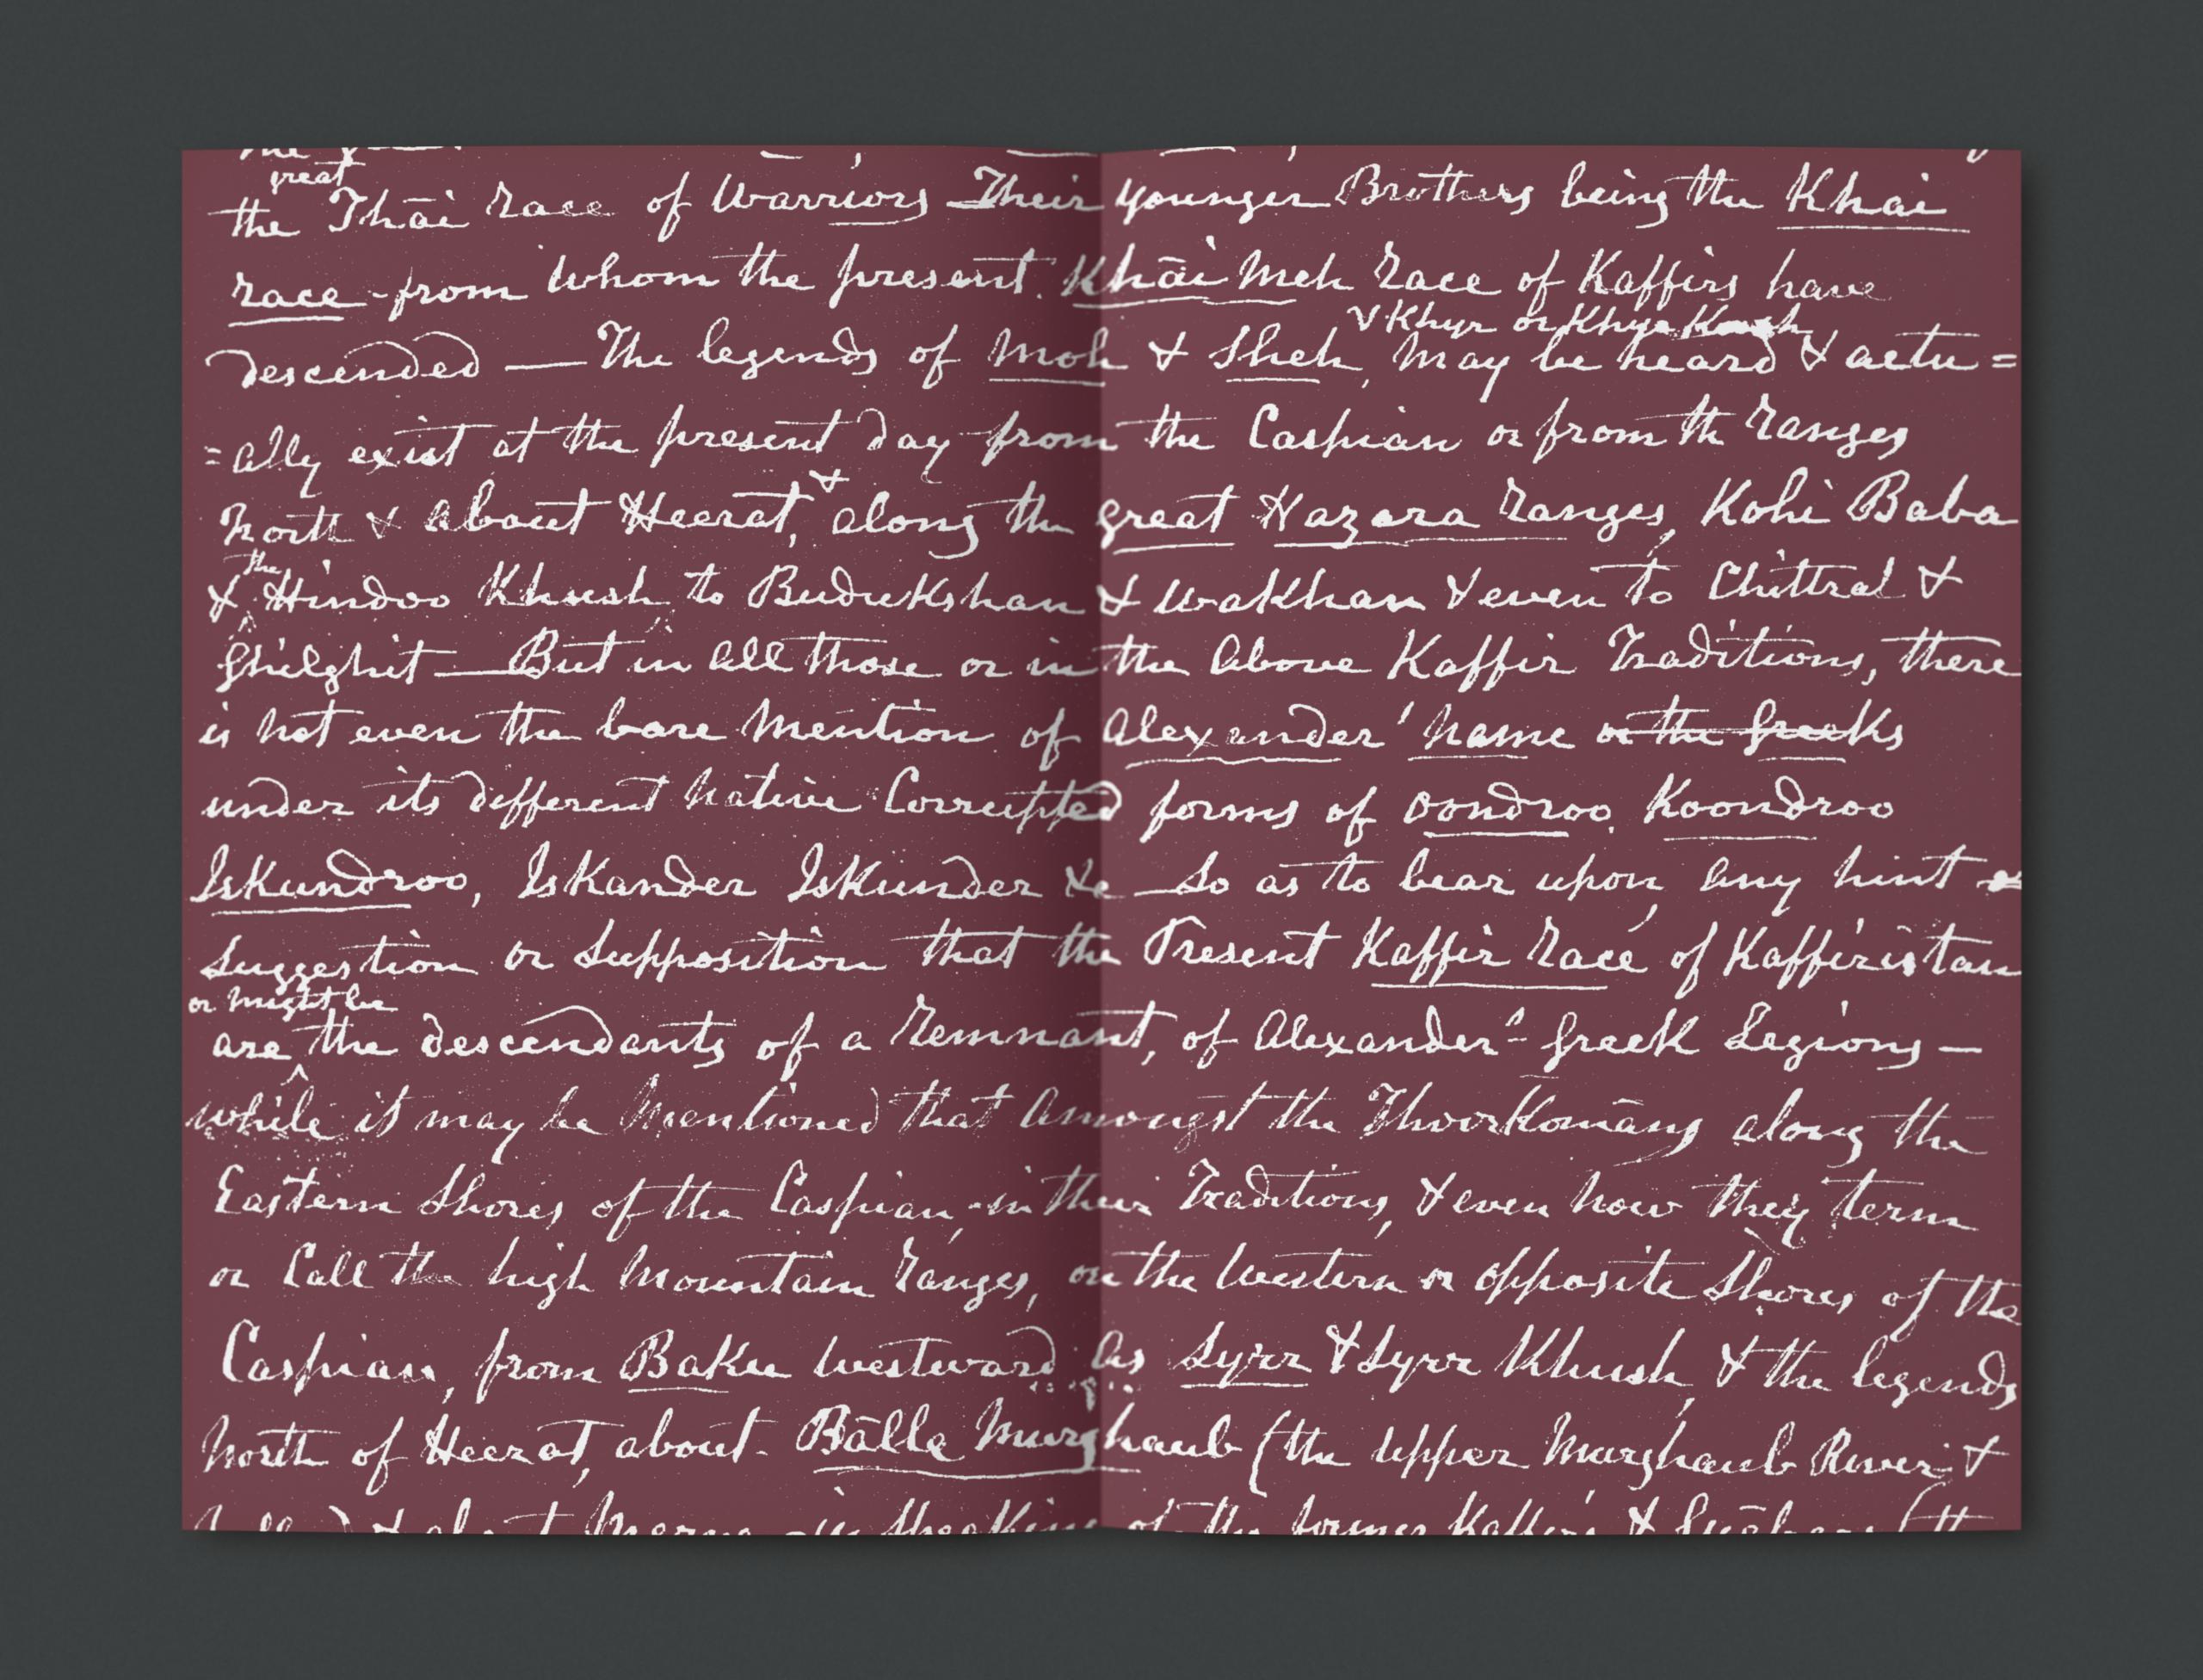 great
the Thāi race of Warriors — Their younger Brothers being the Khāi
race - from whom the present Khāi Meh race of Kaffirs have
& Khyr or Khyr Kush
descended — The legends of Moh & Sheh, may be heard & actu=
=ally exist at the present day from the Caspian or from th ranges
north & about Heerat, & along the great Hazara ranges, Kohi Baba
& the Hindoo Khush, to Budukshan & Wakhan & even to Chittral &
Ghilghit — But in all those or in the above Kaffir Traditions, there
is not even the bare mention of Alexander' name or the Greeks
under its different native Corrupted forms of Oondroo, Koondroo
Iskundroo, Iskander Iskunder &c — So as to bear upon, any hint
Suggestion or Supposition that the Present Kaffir race of Kaffiristan
or might be
are the descendants of a remnant, of Alexander's Greek Legions —
while it may be mentioned that amongst the Thoorkomāns along the
Eastern Shores of the Caspian, in their Traditions, & even now they term
or Call the high Mountain ranges, on the Western or opposite Shores of the
Caspian, from Baku westward as Syrr & Syrr Khush, & the legends
north of Heerat, about Bālle Murghaub (the upper Murghaub River &